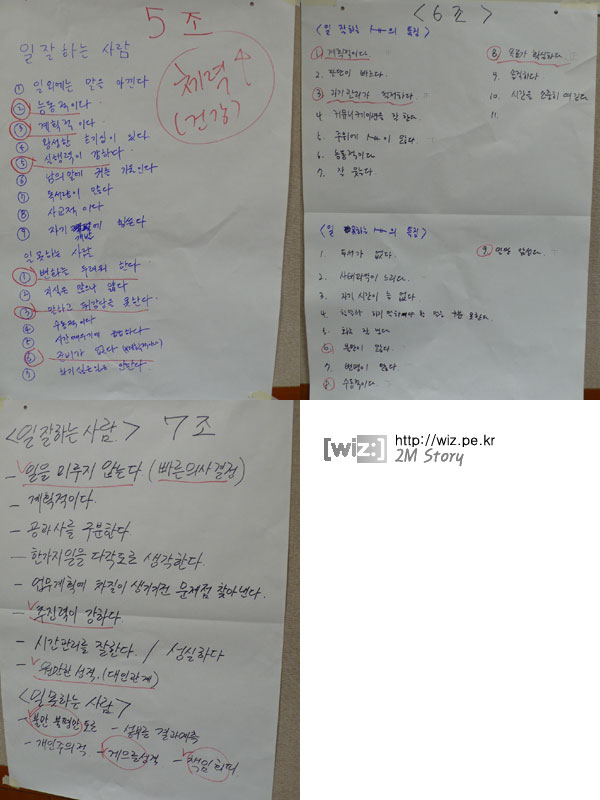 5조
일 잘하는 사람
체력↑
(건강)
① 일 외에는 말을 아낀다
② 능동적이다
③ 계획적이다
④ 왕성한 호기심이 있다
⑤ 실행력이 강하다
⑥ 남의 말에 귀를 기울인다
⑦ 독서량이 많다
⑧ 사교적이다
⑨ 자기개발에 힘쓴다
일 못하는 사람
① 변화를 두려워 한다
② 지식은 많으나
③ 말하고 책임을 못한다
④ 수동적이다
⑤
⑥ 준비가 없다
⑦ 하기 싫은일은 안한다
<6조>
<일 잘하는 사람의 특징>
① 계획적이다.
2. 판단이 빠르다.
③ 자기관리가 철저하다
4. 커뮤니케이션을 잘 한다.
5. 주위에 사람이 많다.
6. 능동적이다
7. 잘 웃는다.
⑧ 목표가 확실하다.
9. 솔직하다
10. 시간을 소중히 여긴다.
11.
<일 못하는 사람의 특징>
1. 두서가 없다.
2. 사태파악이 느리다.
3. 자기 시간이 없다
4.
5. 화를 잘 낸다.
⑥ 불만이 많다.
7. 변명이 많다
⑧ 수동적이다.
⑨ 인맥 없다.
<일 잘하는 사람> 7조
- 일을 미루지 않는다. (빠른의사결정)
- 계획적이다.
- 공과사를 구분한다.
- 한가지일을 다각도로 생각한다.
- 업무계획에 차질이 생기기전 문제점 찾아낸다.
- 추진력이 강하다
- 시간관리를 잘한다. / 성실하다
- 원만한 성격. (대인관계)
<일 못하는 사람>
- 불만 불평만 토로 - 실패를 결과예측
- 개인주의적 - 게으른성격 - 책임회피
[wiz:] http://wiz.pe.kr
2M Story